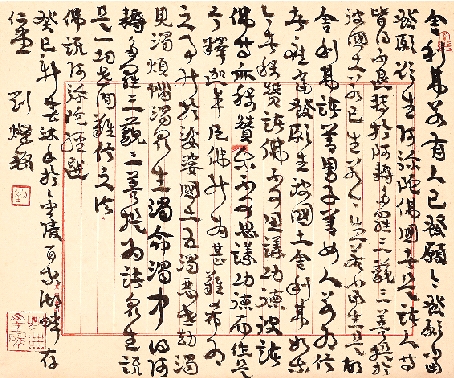 舍利弗若有人已發願今發願當
發願欲生阿彌陀佛國者是諸人等
皆得不退轉於阿耨多羅三藐三菩提於
彼國土若已生若今生若當生是故
舍利弗諸善男子善女人若有信
者應當發願生彼國土舍利弗如我
今者稱讚諸佛不可思議功德彼諸
佛等亦稱讚我不可思議功德而作是
言釋迦牟尼佛能為甚難希有
之事能於娑婆國土五濁惡世劫濁
見濁煩惱濁眾生濁命濁中得阿
耨多羅三藐三菩提為諸眾生說
是一切世間難信之法
佛說阿彌陀經選
癸巳於金陵百家湖畔存
仁堂 劉燦銘